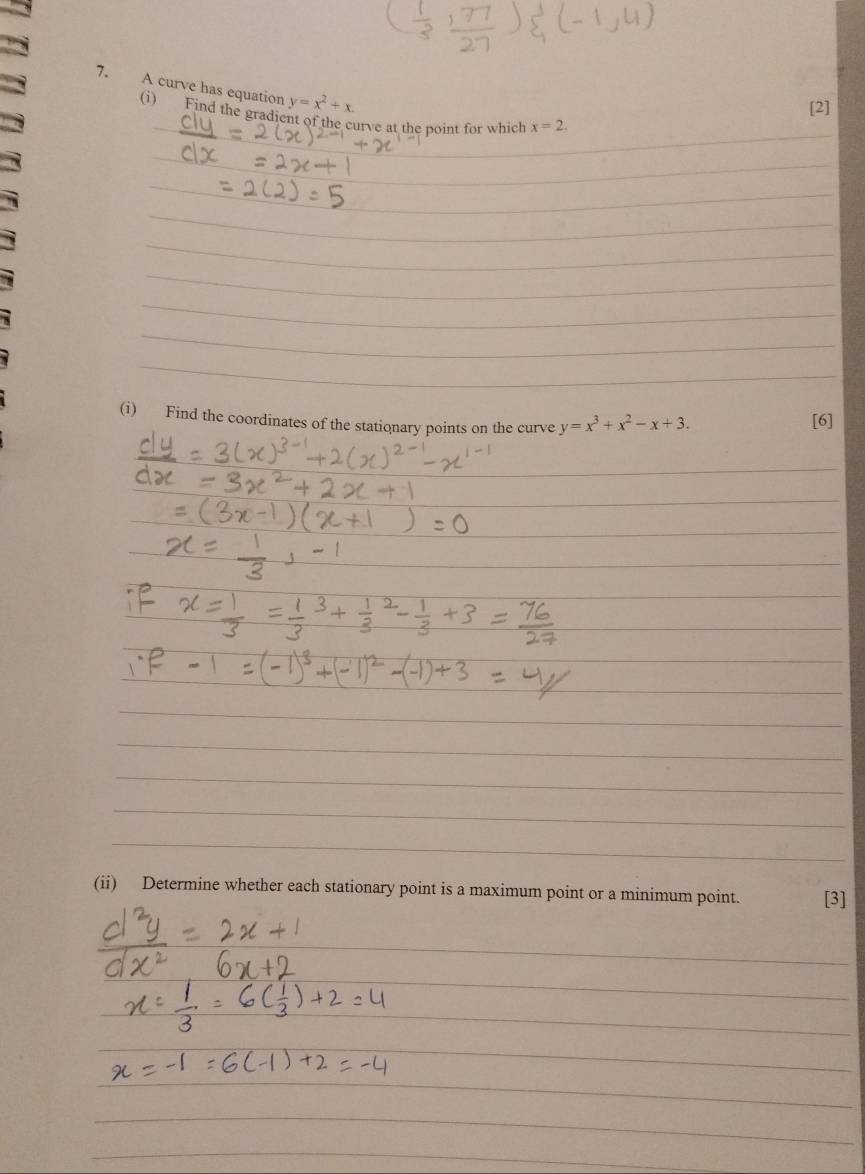 (1/3, 77/27) & (-1, 4)
7. A curve has equation y = x² + x.
(i) Find the gradient of the curve at the point for which x = 2. [2]
dy/dx = 2(x)²⁻¹ + x¹⁻¹
= 2x + 1
= 2(2) = 5
(i) Find the coordinates of the stationary points on the curve y = x³ + x² − x + 3. [6]
dy/dx = 3(x)³⁻¹ + 2(x)²⁻¹ − x¹⁻¹
= 3x² + 2x + 1
= (3x − 1)(x + 1) = 0
x = 1/3, −1
if x = 1/3 = 1/3³ + 1/3² − 1/3 + 3 = 76/27
if −1 = (−1)³ + (−1)² − (−1) + 3 = 4//
(ii) Determine whether each stationary point is a maximum point or a minimum point. [3]
d²y/dx² = 2x + 1
6x + 2
x = 1/3 = 6(1/3) + 2 = 4
x = −1 = 6(−1) + 2 = −4